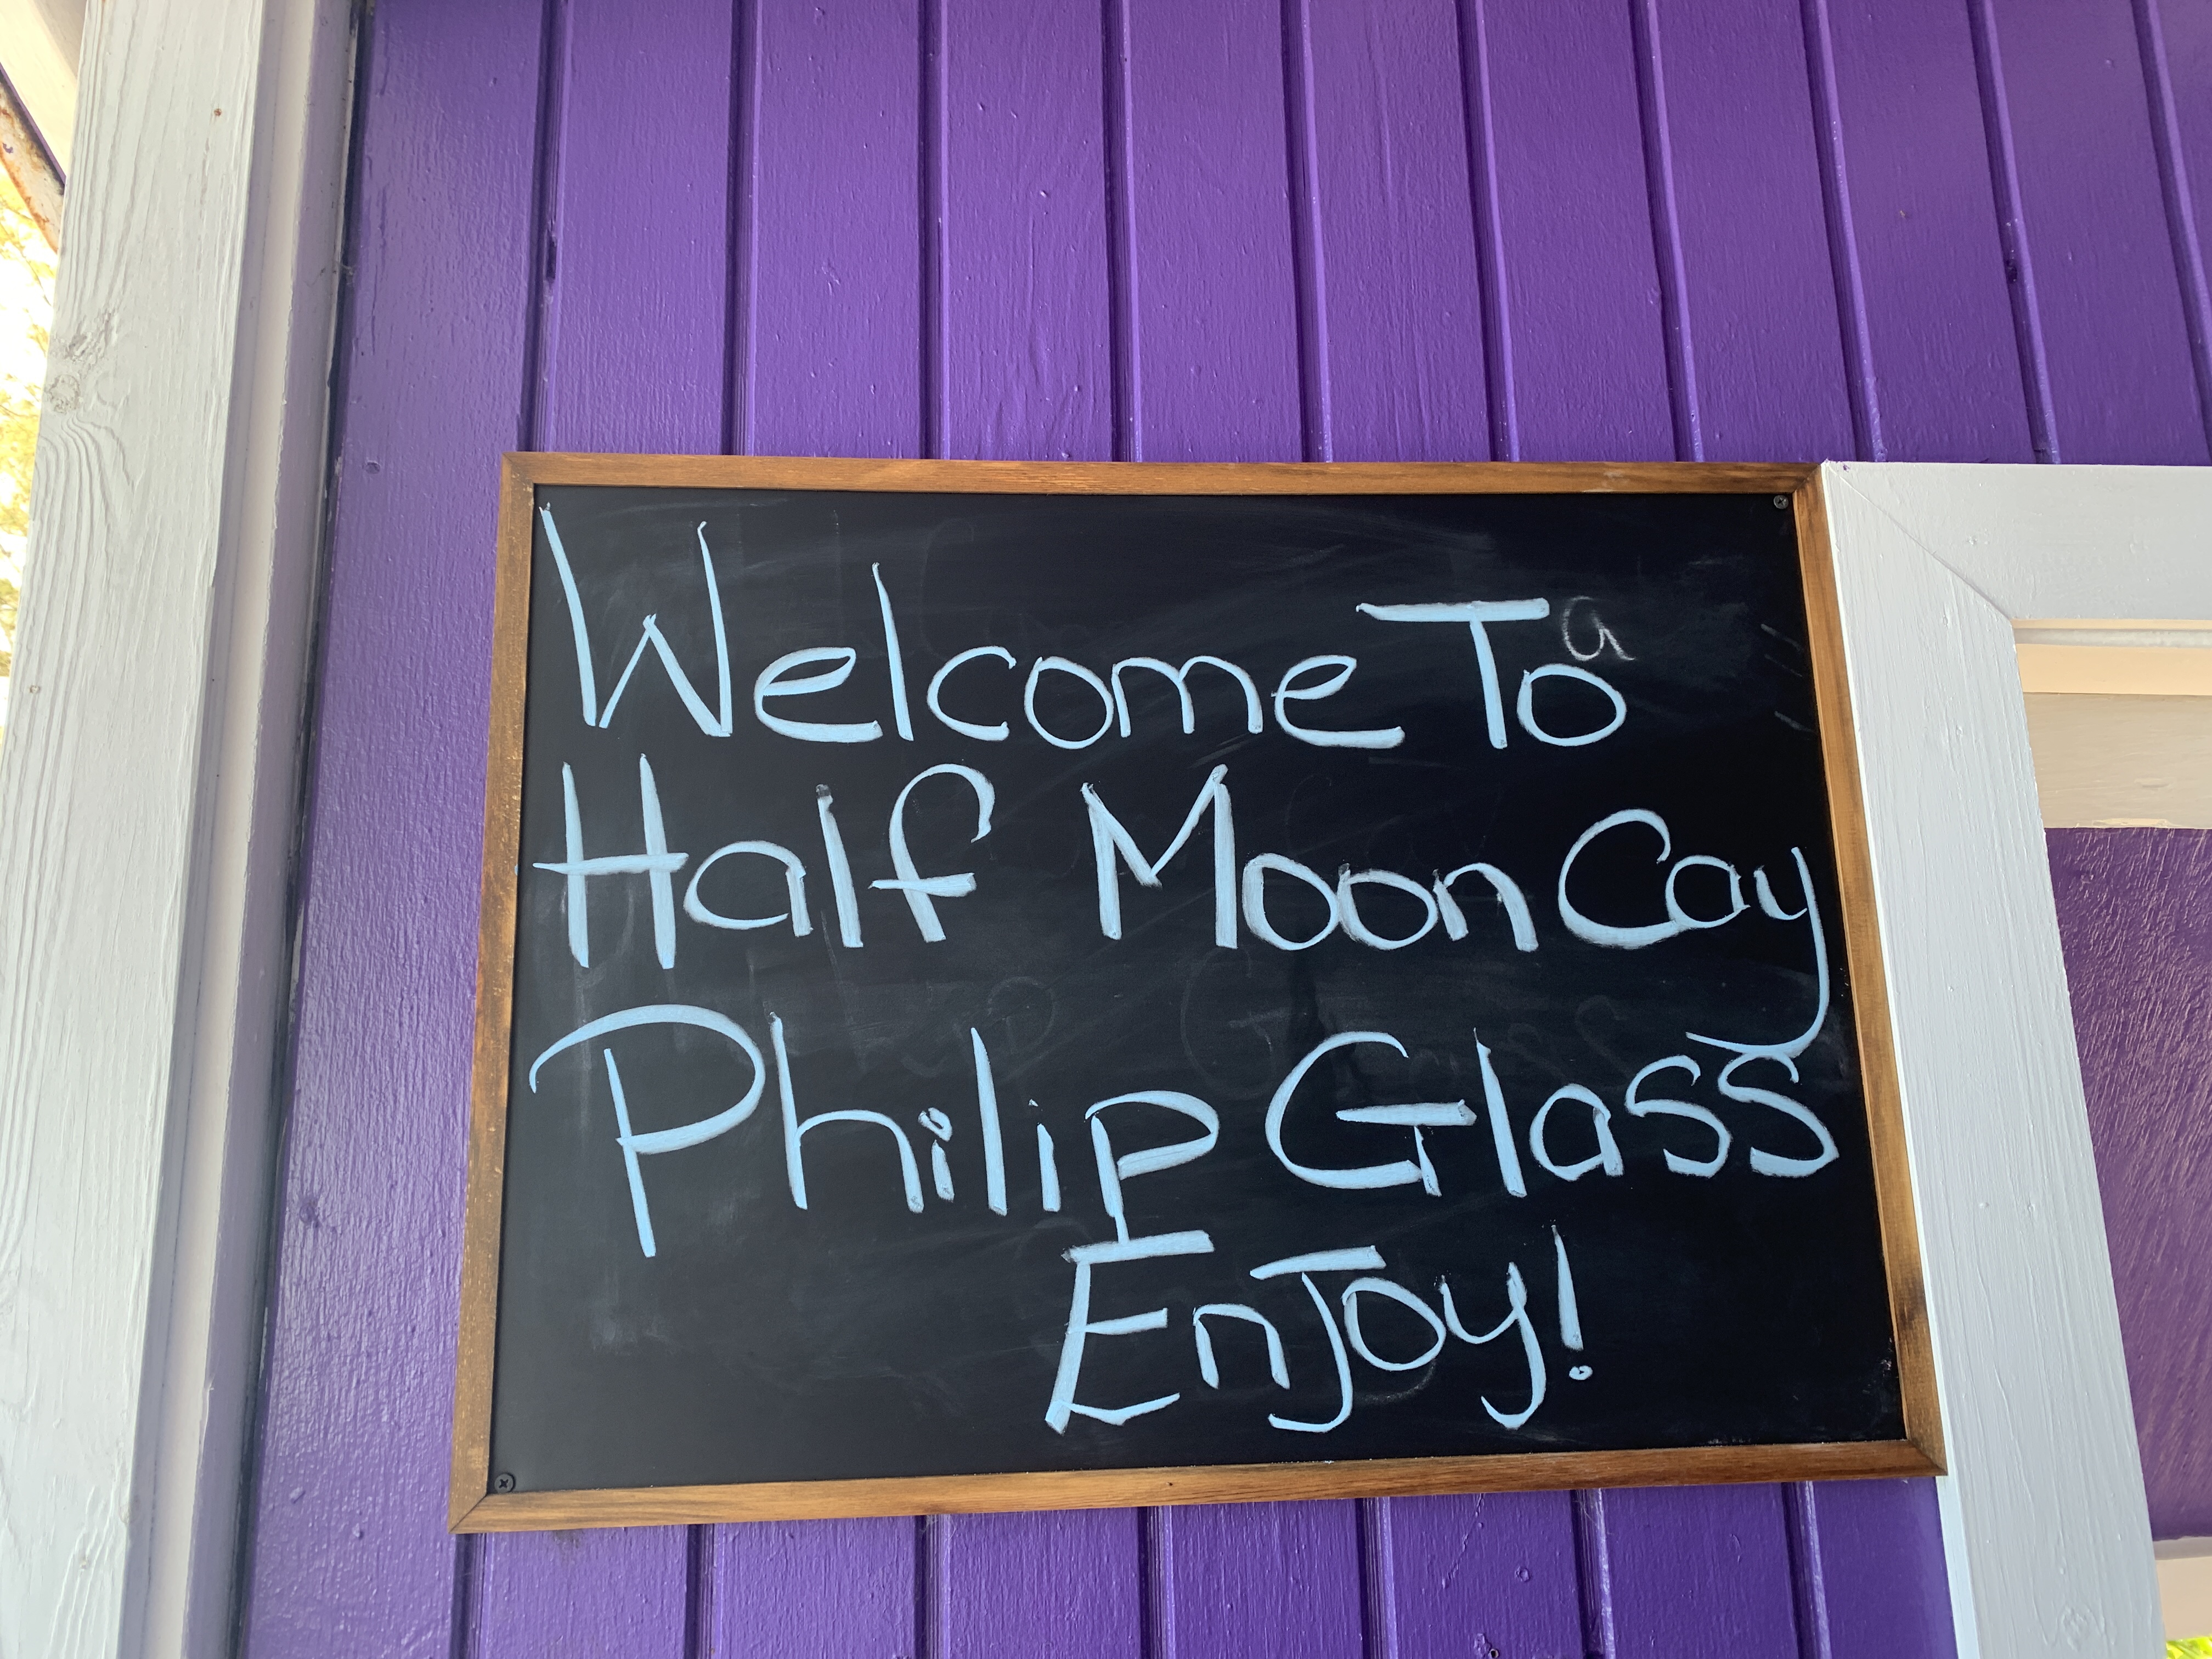 Welcome To a
Half Moon Cay
Philip Glass
Enjoy!